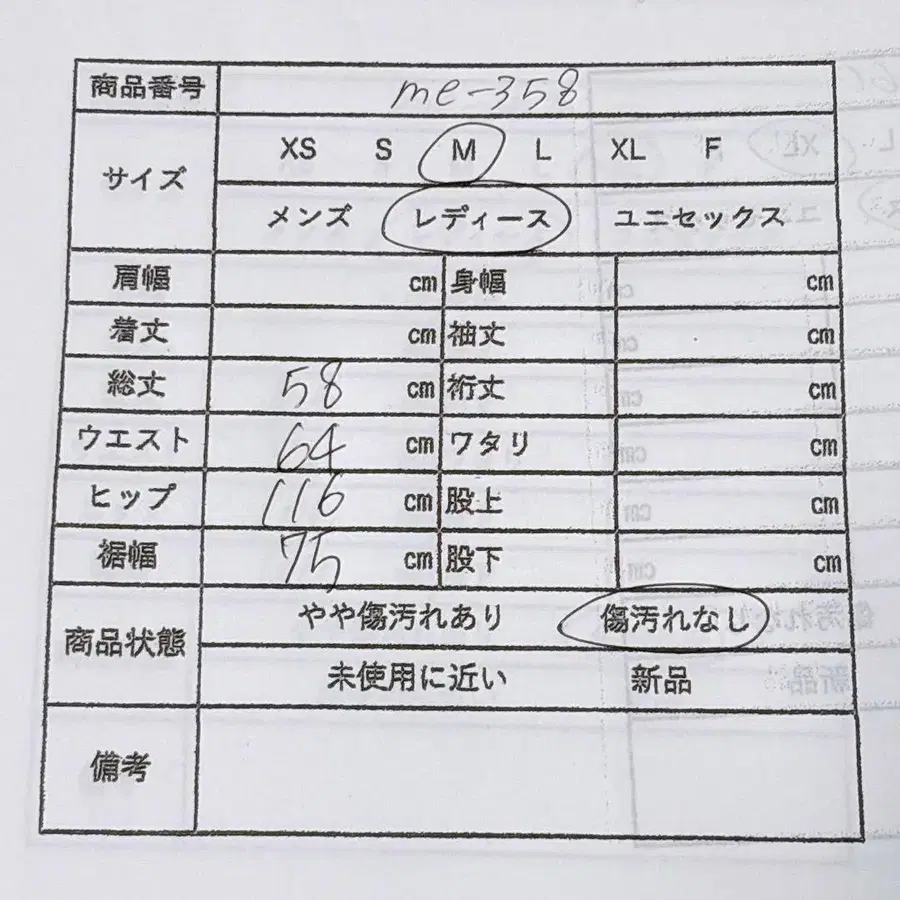 商品番号 me-358
サイズ XS S M L XL F
メンズ レディース ユニセックス
肩幅 cm 身幅 cm
着丈 cm 袖丈 cm
総丈 58 cm 裄丈 cm
ウエスト 64 cm ワタリ cm
ヒップ 116 cm 股上 cm
裾幅 75 cm 股下 cm
商品状態 やや傷汚れあり 傷汚れなし
未使用に近い 新品
備考